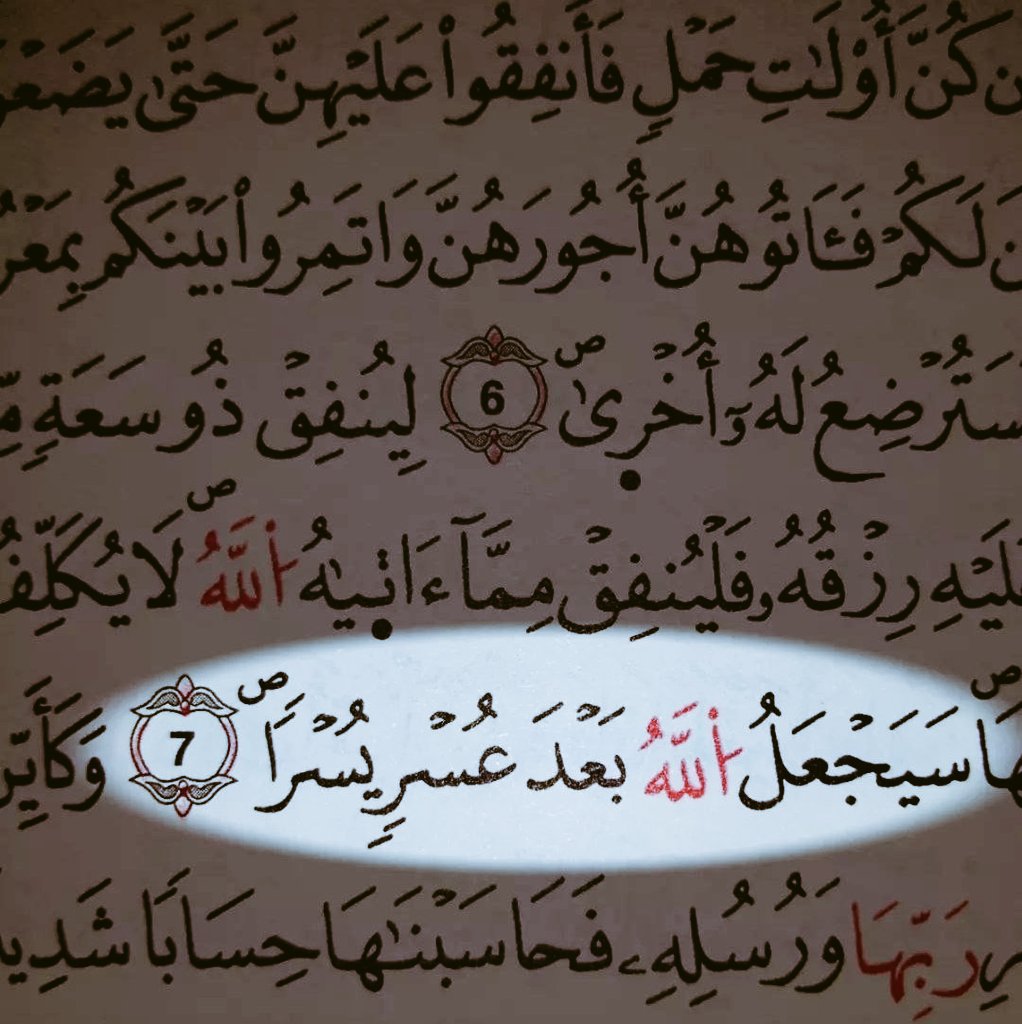 ن كُنَّ أُوْلَٰتِ حَمْلٍ فَأَنفِقُواْ عَلَيْهِنَّ حَتَّىٰ يَضَعْ
نَ لَكُمْ فَـَٔاتُوهُنَّ أُجُورَهُنَّ وَاتَمِرُواْ بَيْنَكُم بِمَعْرُ
سَتُرْضِعُ لَهُۥٓ أُخْرٜىٰۖ 6 لِيُنفِقْ ذُو سَعَةٍ مِّ
عَلَيْهِ رِزْقُهُۥ فَلْيُنفِقْ مِمَّآ ءَاتٜيٰهُ اُ۬للَّهُۖ لَا يُكَلِّفُ
هَاۖ سَيَجْعَلُ اُ۬للَّهُ بَعْدَ عُسْرٍ يُسْراًۖ 7 وَكَأَيِّن
رِ رَبِّهَا وَرُسُلِهِۦ فَحَاسَبْنَٰهَا حِسَاباً شَدِي